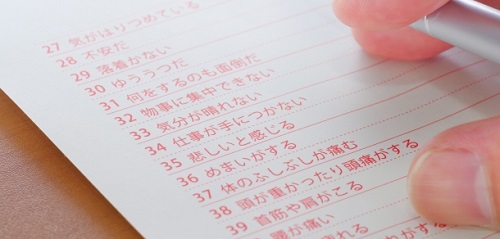 27 気がはりつめている
28 不安だ
29 落着かない
30 ゆううつだ
31 何をするのも面倒だ
32 物事に集中できない
33 気分が晴れない
34 仕事が手につかない
35 悲しいと感じる
36 めまいがする
37 体のふしぶしが痛む
38 頭が重かったり頭痛がする
39 首筋や肩がこる
腰が痛い
れる